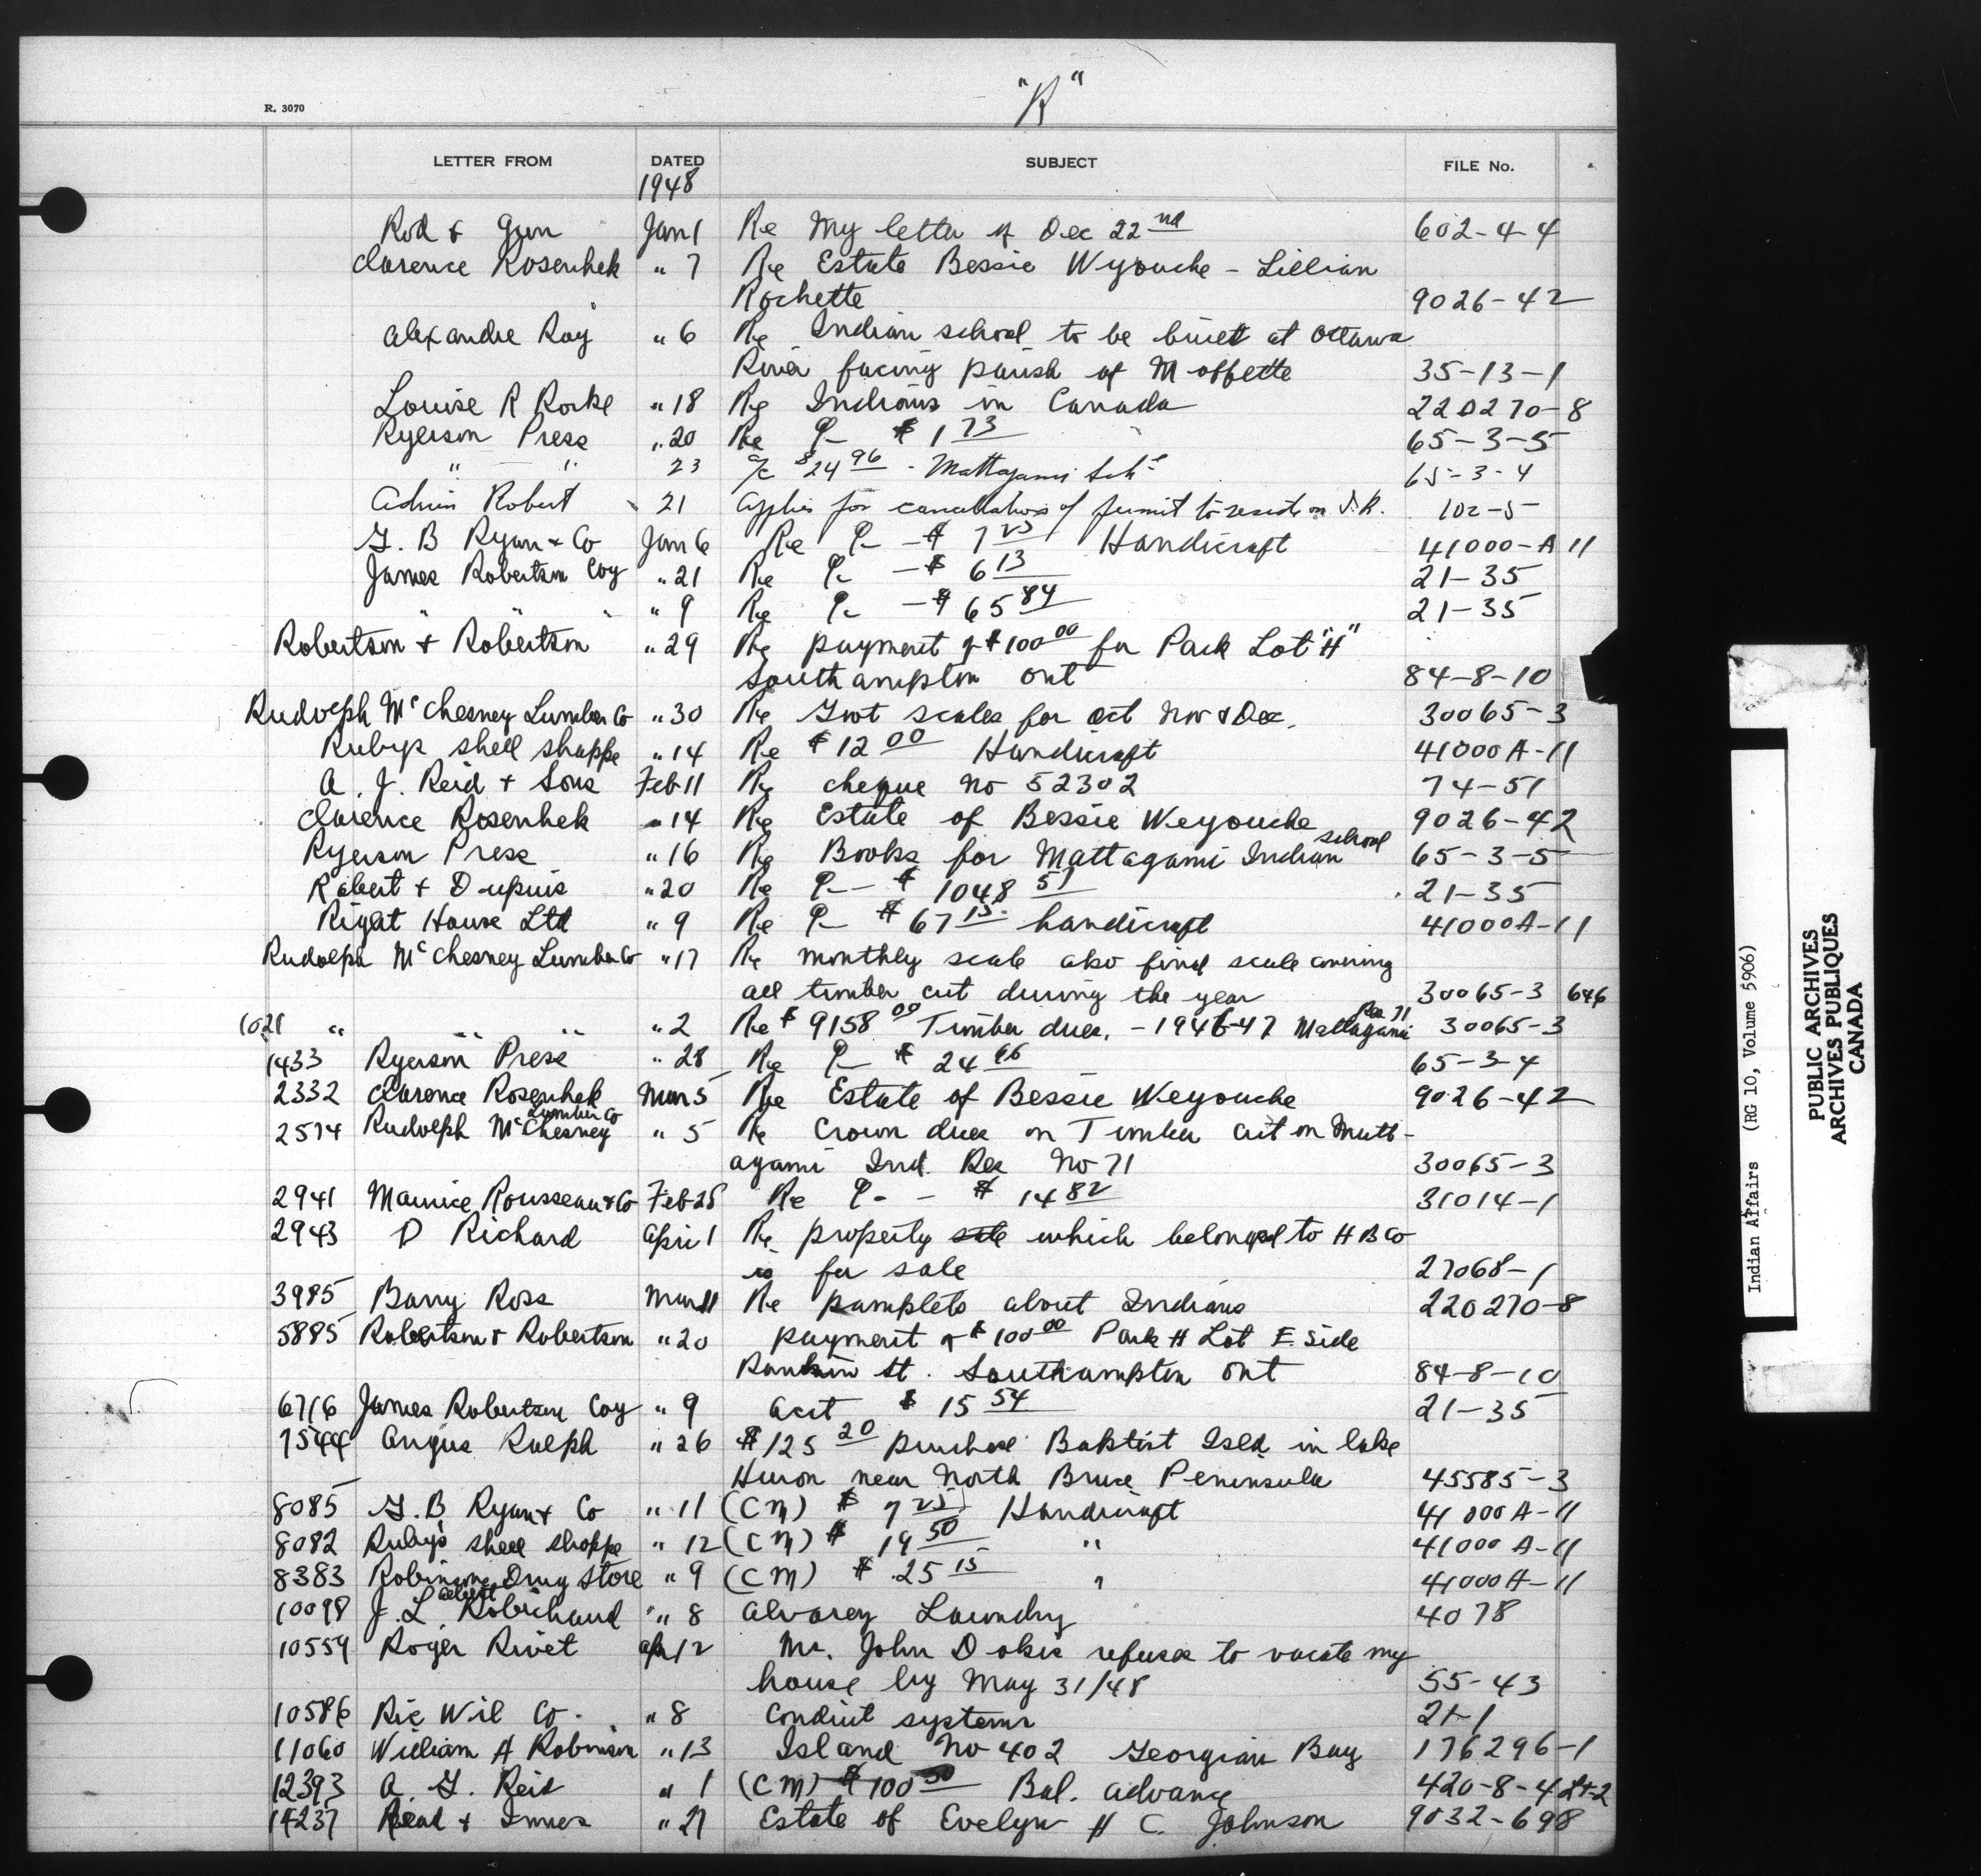 "R"
R. 3070
LETTER FROM DATED SUBJECT FILE No.
1948
Rod & Gun Jan 1 Re My letter of Dec 22nd 602-4-4
Clarence Rosenhek " 7 Re Estate Bessie Wyouche - Lillian
Rochette 9026-42
Alexandre Roy " 6 Re Indian school to be built at Ottawa
River facing parish of Moffette 35-13-1
Louise R Rorke " 18 Re Indians in Canada 220270-8
Ryerson Press " 20 Re $1 73 65-3-5
" " 23 a/c $24 96 - Mattagami Schl 65-3-4
Robert 21 Applies for cancellation of permit to reside on I.R. 102-5
G. B Ryan & Co Jan 6 Re - $ 7 25 Handicraft 41000-A 11
James Robertson Coy " 21 Re - $ 6 13 21-35
" " " " 9 Re - $ 65 84 21-35
Robertson & Robertson " 29 Re payment of $100 00 for Park Lot "H"
Southampton Ont 84-8-10
Rudolph McChesney Lumber Co " 30 Re Govt scales for Oct Nov & Dec. 30065-3
Rubys shell shoppe " 14 Re $12 00 Handicraft 41000 A-11
A. J. Reid & Sons Feb 11 Re cheque no 52302 74-51
Clarence Rosenhek " 14 Re Estate of Bessie Weyouche 9026-42
Ryerson Press " 16 Re Books for Mattagami Indian school 65-3-5
Robert & Dupuis " 20 Re - $ 1048 51 21-35
Right House Ltd " 9 Re - $ 67 15 handicraft 41000A-11
Rudolph McChesney Lumber Co " 17 Re monthly scale also final scale covering
all timber cut during the year 30065-3 646
1021 " " " " 2 Re $ 9158 00 Timber dues. - 1946-47 Mattagami Res 71 30065-3
1433 Ryerson Press " 28 Re - $ 24 96 65-3-4
2332 Clarence Rosenhek Mar 5 Re Estate of Bessie Weyouche 9026-42
2574 Rudolph McChesney Lumber Co " 5 Re Crown dues on Timber cut on Matt-
agami Ind. Res No 71 30065-3
2941 Maurice Rousseau & Co Feb 28 Re - $ 14 82 31014-1
2943 D Richard April 1 Re property which belonged to H B Co
is for sale 27068-1
3985 Barry Ross Mar 11 Re pamplets about Indians 220270-8
5885 Robertson & Robertson " 20 payment of $100 00 Park H Lot E. Side
Rankin St. Southampton Ont 84-8-10
6716 James Robertson Coy " 9 acct $ 15 54 21-35
7544 Angus Ralph " 26 $125 20 purchase Baptist Isld in lake
Huron near North Bruce Peninsula 45585-3
8085 G. B. Ryan & Co " 11 (CM) $ 7 25 Handicraft 41000 A-11
8082 Ruby's shell shoppe " 12 (CM) $ 19 50 " 41000 A-11
8383 Robinsons Drug Store " 9 (CM) $ 25 15 " 41000A-11
10098 J. L. Albert Robichaud " 8 Laundry 4078
10559 Roger Rivet Apr 12 Mr. John Dokis refuses to vacate my
house by May 31/48 55-43
10586 Ric Wil Co. " 8 Conduit systems 21-1
11060 William A Robinson " 13 Island No 402 Georgian Bay 176296-1
12393 A. G. Reid " 1 (CM) $ 100 Bal. advance 420-8-4
14237 Read & Innes " 27 Estate of Evelyn H C. Johnson 9032-698
Indian Affairs (RG 10, Volume 5906)
PUBLIC ARCHIVES
ARCHIVES PUBLIQUES
CANADA